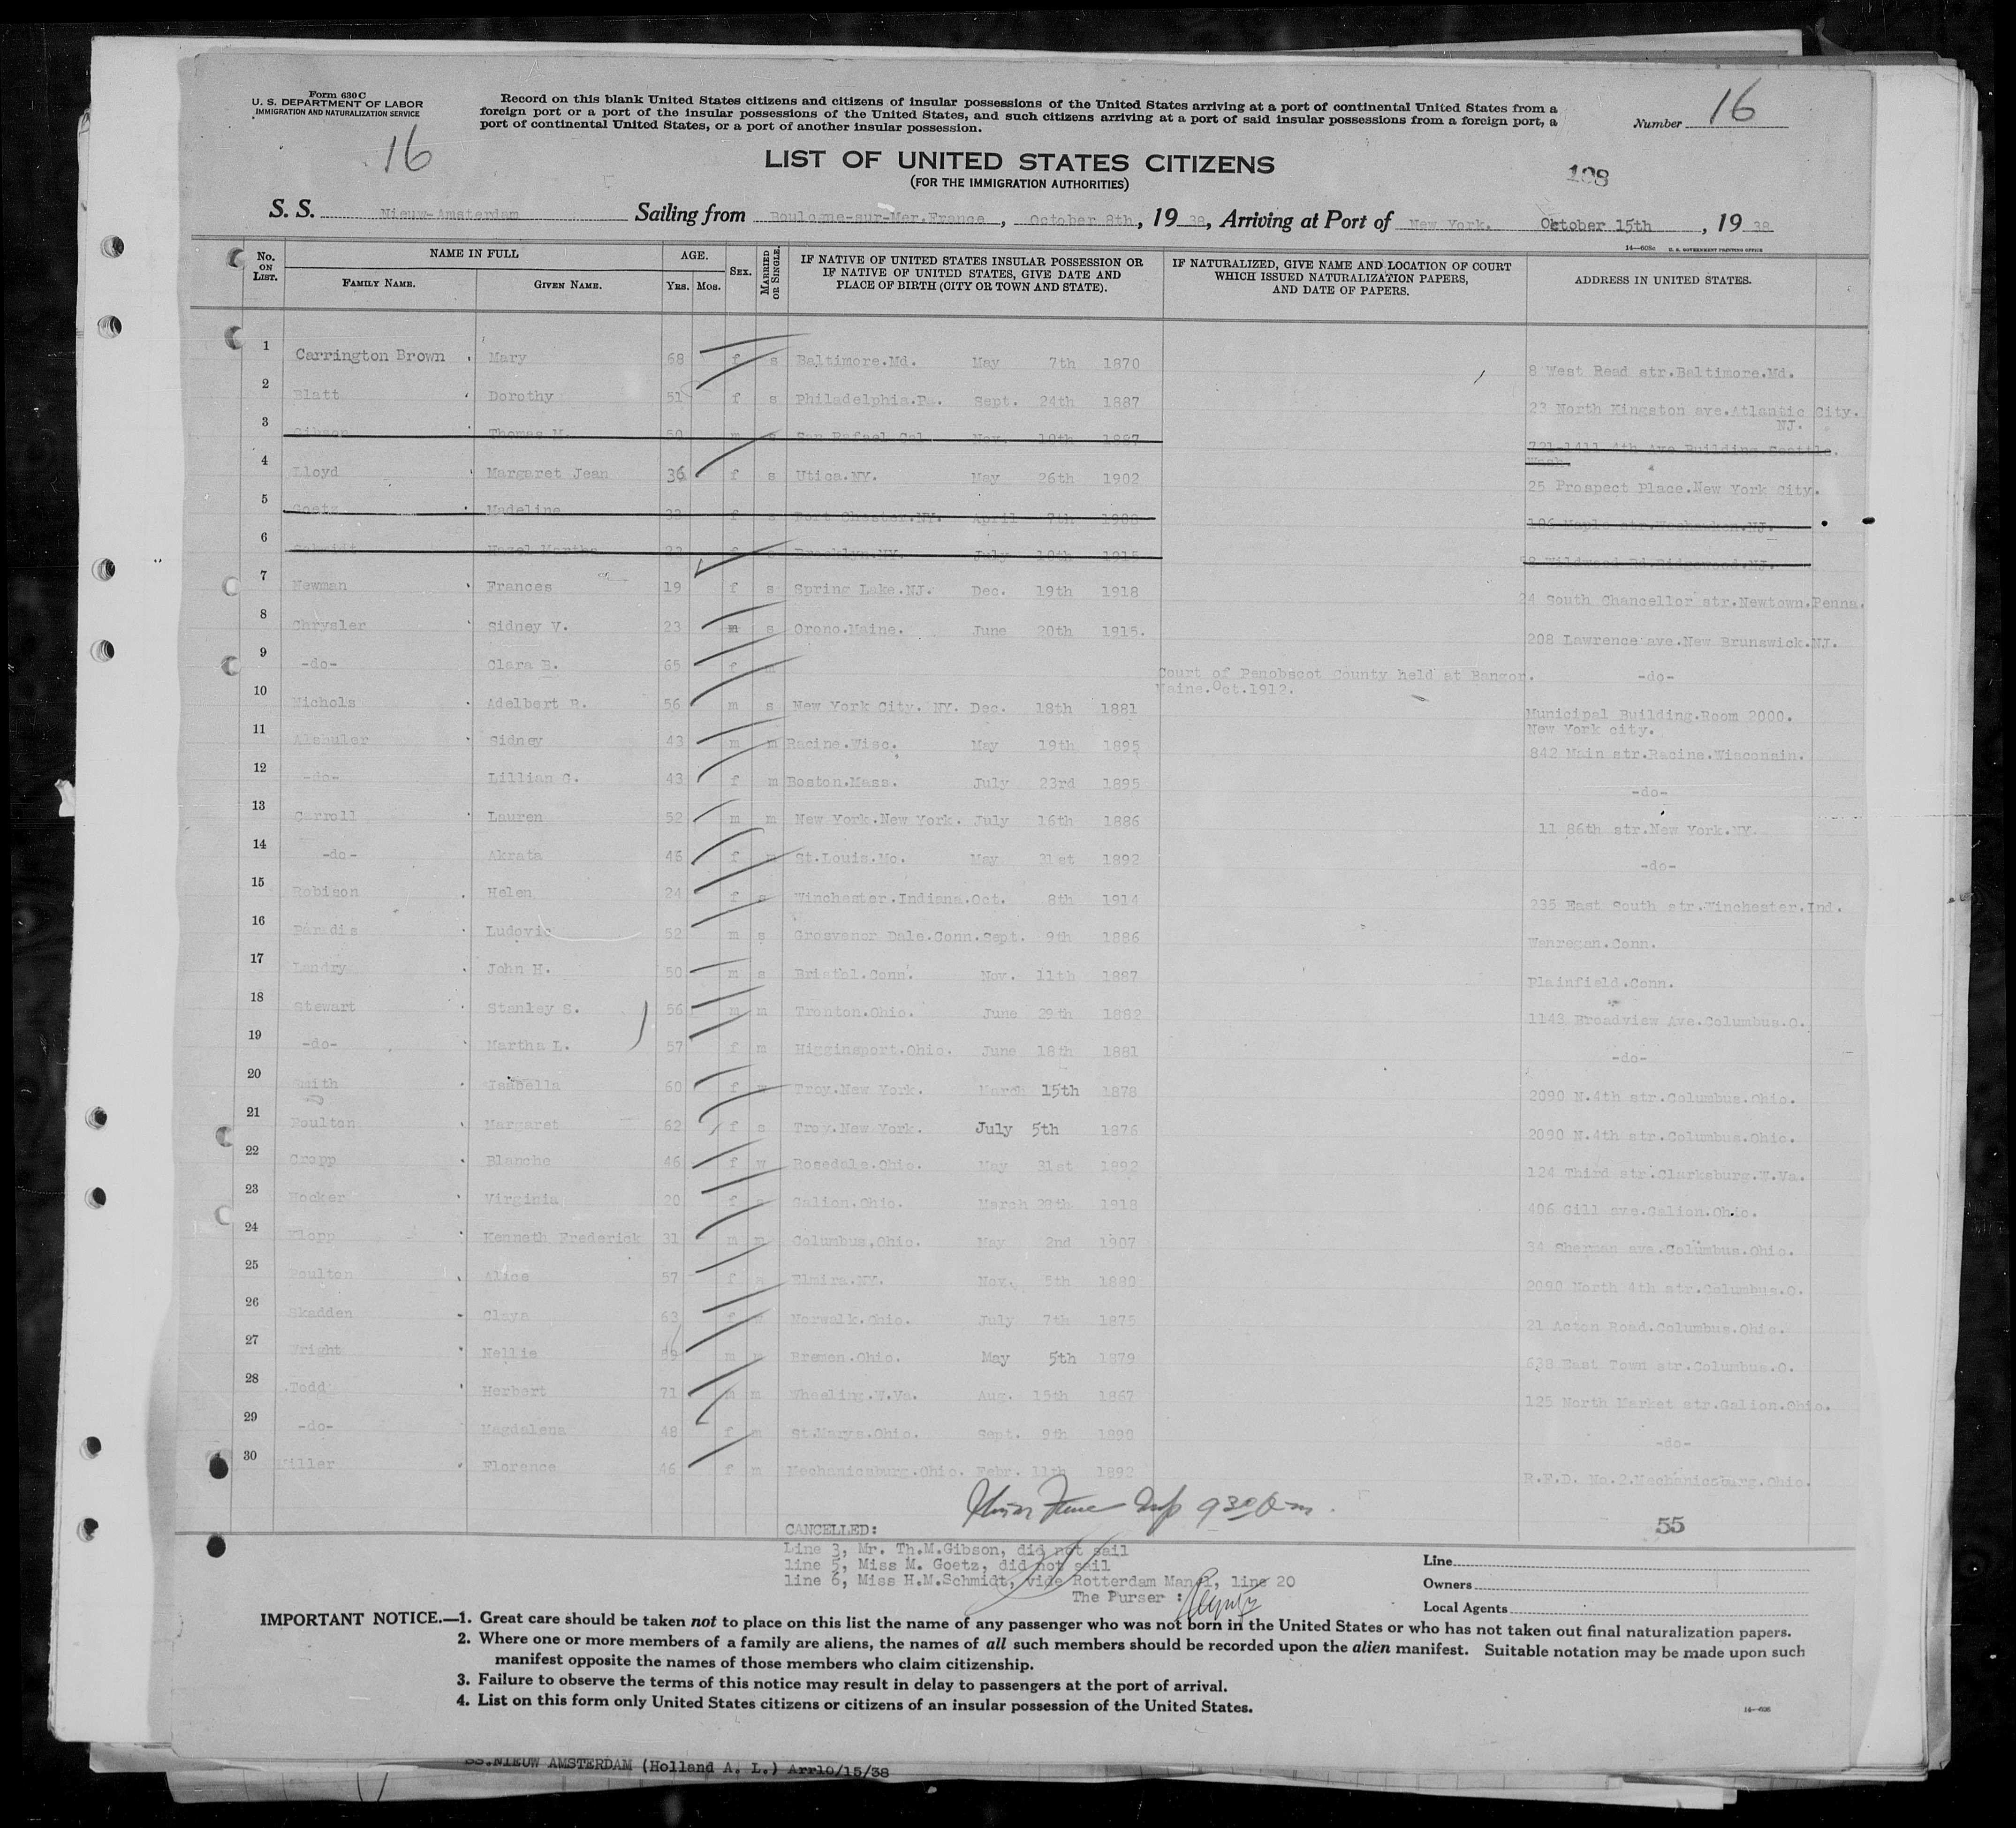 Form 630 C
U. S. DEPARTMENT OF LABOR
IMMIGRATION AND NATURALIZATION SERVICE
Record on this blank United States citizens and citizens of insular possessions of the United States arriving at a port of continental United States from a
foreign port or a port of the insular possessions of the United States, and such citizens arriving at a port of said insular possessions from a foreign port, a
port of continental United States, or a port of another insular possession.
Number 16
16
LIST OF UNITED STATES CITIZENS
(FOR THE IMMIGRATION AUTHORITIES)
198
S. S. Nieuw-Amsterdam Sailing from Boulogne-sur-Mer.France, October 8th, 19 38, Arriving at Port of New York. October 15th, 19 38
14—608c U. S. GOVERNMENT PRINTING OFFICE
No. ON LIST. NAME IN FULL FAMILY NAME. GIVEN NAME. AGE. YRS. MOS. SEX. MARRIED OR SINGLE. IF NATIVE OF UNITED STATES INSULAR POSSESSION OR IF NATIVE OF UNITED STATES, GIVE DATE AND PLACE OF BIRTH (CITY OR TOWN AND STATE). IF NATURALIZED, GIVE NAME AND LOCATION OF COURT WHICH ISSUED NATURALIZATION PAPERS, AND DATE OF PAPERS. ADDRESS IN UNITED STATES.
1 Carrington Brown Mary 68 f s Baltimore.Md. May 7th 1870 8 West Read str.Baltimore.Md.
2 Blatt Dorothy 51 f s Philadelphia.Pa. Sept. 24th 1887 23 North Kingston ave.Atlantic City. NJ.
3 Gibson Thomas M. 50 m s San Rafael Cal. Nov. 10th 1887 721-1411 4th Ave Building Seattle. Wash.
4 Lloyd Margaret Jean 36 f s Utica.NY. May 26th 1902 25 Prospect Place.New York City.
5 Goetz Madeline 33 f s Port Chester.NY. April 7th
6 Schmidt Hazel Martha 23 f Brooklyn.NY. July 10th 1915
7 Newman Frances 19 f s Spring Lake.NJ. Dec. 19th 1918 24 South Chancellor str.Newtown.Penna.
8 Chrysler Sidney V. 23 m s Orono.Maine. June 20th 1915. 208 Lawrence ave.New Brunswick.NJ.
9 -do- Clara B. 65 f m Court of Penobscot County held at Bangor. Maine.Oct.1912. -do-
10 Nichols Adelbert R. 56 m s New York City. NY. Dec. 18th 1881 Municipal Building.Room 2000. New York city.
11 Alshuler Sidney 43 m m Racine.Wisc. May 19th 1895 842 Main str.Racine.Wisconsin.
12 -do- Lillian G. 43 f m Boston.Mass. July 23rd 1895 -do-
13 Carroll Lauren 52 m m New York.New York. July 16th 1886 11 86th str.New York.NY.
14 -do- Akrata 46 f m St.Louis.Mo. May 31st 1892 -do-
15 Robison Helen 24 f s Winchester.Indiana.Oct. 8th 1914 235 East South str.Winchester.Ind.
16 Paradis Ludovic 52 m s Grosvenor Dale.Conn.Sept. 9th 1886 Wanregan.Conn.
17 Landry John H. 50 m s Bristol.Conn. Nov. 11th 1887 Plainfield.Conn.
18 Stewart Stanley S. 56 m m Tronton.Ohio. June 29th 1882 1143 Broadview Ave.Columbus.O.
19 -do- Martha L. 57 f m Higginsport.Ohio. June 18th 1881 -do-
20 Smith Isabella 60 f Troy.New York. March 15th 1878 2090 N.4th str.Columbus.Ohio.
21 Poulton Margaret 62 f s Troy.New York. July 5th 1876 2090 N.4th str.Columbus.Ohio.
22 Cropp Blanche 46 f w Rosedale.Ohio. May 31st 1892 124 Third str.Clarksburg.W.Va.
23 Hocker Virginia 20 f s Galion.Ohio. March 28th 1918 406 Gill ave.Galion.Ohio.
24 Klopp Kenneth Frederick 31 m m Columbus.Ohio. May 2nd 1907 34 Sherman ave.Columbus.Ohio.
25 Poulton Alice 57 f s Elmira.NY. Nov. 5th 1880 2090 North 4th str.Columbus.O.
26 Skadden Claya 63 f Norwalk.Ohio. July 7th 1875 21 Acton Road.Columbus.Ohio.
27 Wright Nellie 59 m m Bremen.Ohio. May 5th 1879 638 East Town str.Columbus.O.
28 Todd Herbert 71 m m Wheeling.W.Va. Aug. 15th 1867 125 North Market str.Galion.Ohio.
29 -do- Magdalena 48 f m St.Marys.Ohio. Sept. 9th 1890 -do-
30 Miller Florence 46 f m Mechanicsburg.Ohio. Febr. 11th 1892 R.F.D. No.2.Mechanicsburg.Ohio.
9 30 am.
55
CANCELLED:
Line 3, Mr. Th.M.Gibson, did not sail
line 5, Miss M. Goetz, did not sail
line 6, Miss H.M.Schmidt, vide Rotterdam Manif, line 20
The Purser :
Line
Owners
Local Agents
IMPORTANT NOTICE.—1. Great care should be taken not to place on this list the name of any passenger who was not born in the United States or who has not taken out final naturalization papers.
2. Where one or more members of a family are aliens, the names of all such members should be recorded upon the alien manifest. Suitable notation may be made upon such
manifest opposite the names of those members who claim citizenship.
3. Failure to observe the terms of this notice may result in delay to passengers at the port of arrival.
4. List on this form only United States citizens or citizens of an insular possession of the United States.
14—608
SS.NIEUW AMSTERDAM (Holland A. L.) Arr10/15/38